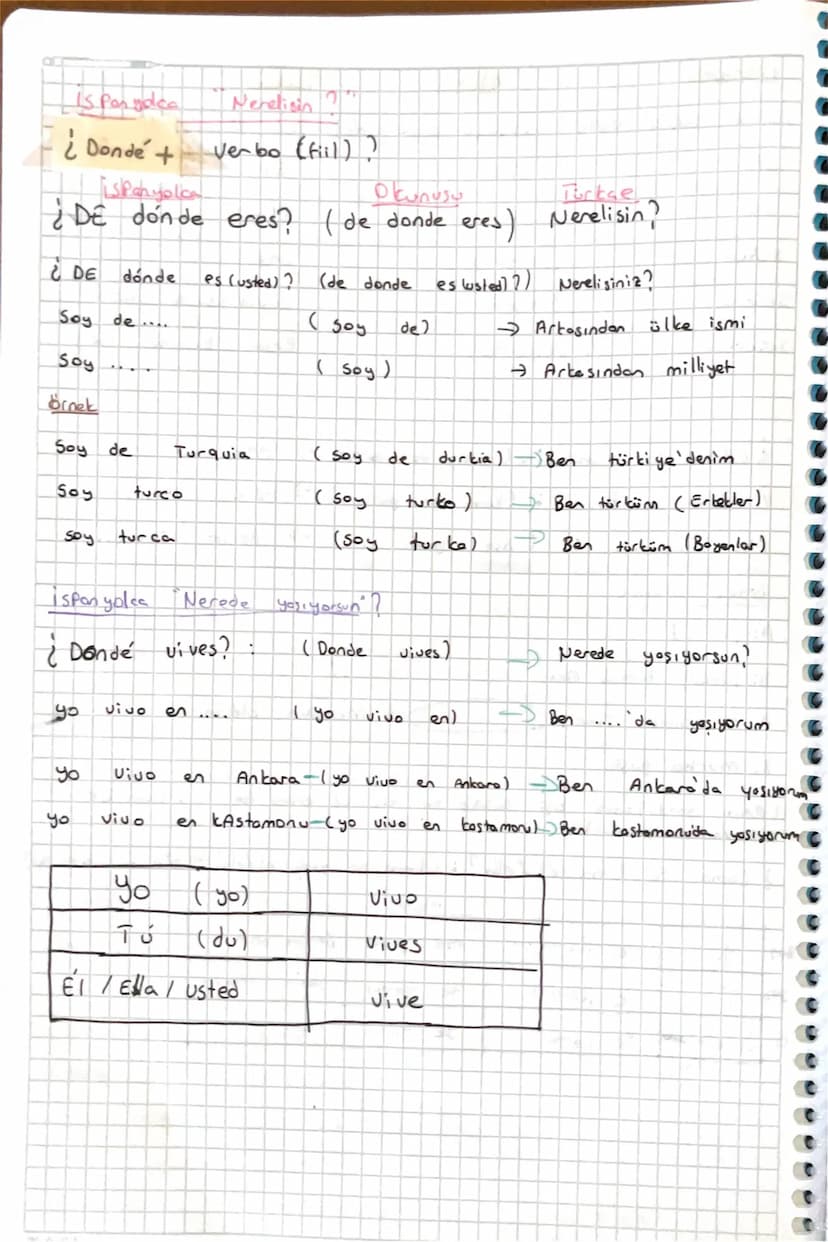 İspanyolca "Nerelisin?"
¿Dondé + verbo (fiil)?
İspanyolca Okunuşu Türkçe
¿DE dónde eres? (de donde eres) Nerelisin?
¿DE dónde es (usted)? (de donde es (usted)?) Nerelisiniz?
Soy de .... (soy de) → Arkasından ülke ismi
Soy .... (soy) → Arkasından milliyet
Örnek
Soy de Turquia (soy de durkia) → Ben türkiye'denim
Soy turco (soy turko) → Ben türküm (Erkekler)
Soy turca (soy turka) → Ben türküm (Bayanlar)
İspanyolca "Nerede yaşıyorsun"?
¿Dondé vives? : (Donde vives) → Nerede yaşıyorsun?
yo vivo en .... (yo vivo en) → Ben ....'da yaşıyorum
yo vivo en Ankara - (yo vivo en Ankara) → Ben Ankara'da yaşıyorum
yo vivo en kAstamonu - (yo vivo en kastamonu) → Ben kastamonu'da yaşıyorum
Yo (yo) vivo
Tú (du) vives
Él / Ella / usted vive